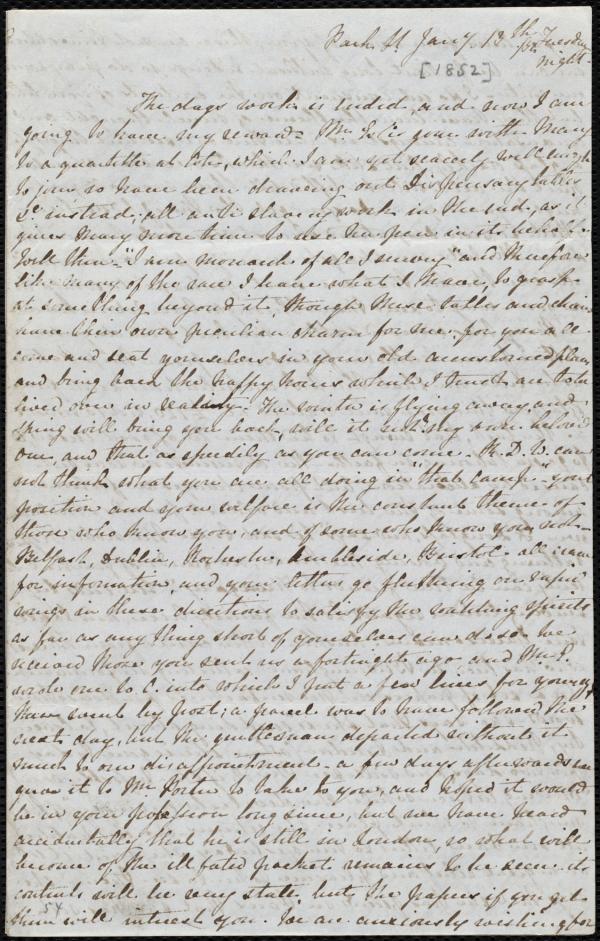 Park St Jany. 13th /52 Tuesday
night.
[1852]
The days work is ended, and now I am
going to have my reward. Mr. E. is gone with Mary
to a quartette at 's, which I am yet scarcely well enough
to join so have been drawing out Dispensary tables
&c instead; all anti slavery work in the end, as it
gives Mary more time to use her pen in its behalf.
Well then - "I am monarch of all I survey" and therefore
like many of the race I leave what I have, to grasp
at something beyond it, though these tables and chairs
have their own peculiar charm for me, for you all
come and seat yourselves in your old accustomed places
and bring back the happy hours which I trust are to be
lived over in reality. The winter is flying away, and
spring will bring you back, will it not? my own beloved
one, and that as speedily as you can come. R. D. W. can
not think what you are all doing in "that camp" your
position and your welfare is the constant theme of
those who know you, and of some who know you not
Belfast, Dublin, Rochester, Ambleside, Bristol - all crave
for information, and your letters go fluttering on rapid
wings in these directions to satisfy the watching spirits
as far as any thing short of yourselves can do so. We
received those you sent us a fortnight ago and Mr. E.
wrote one to C. into which I put a few lines for you
have sent by post; a parcel was to have followed the
next day, but the gentleman departed without it
much to our disappointment - a few days afterwards we
gave it to Mr Porter to take to you, and hoped it would
be in your possession long since, but we have heard
accidentally that he is still in London, so what will
become of the ill fated packet remains to be seen. its
contents will be very stale, but the papers if you get
them will interest you. We are anxiously wishing for
54